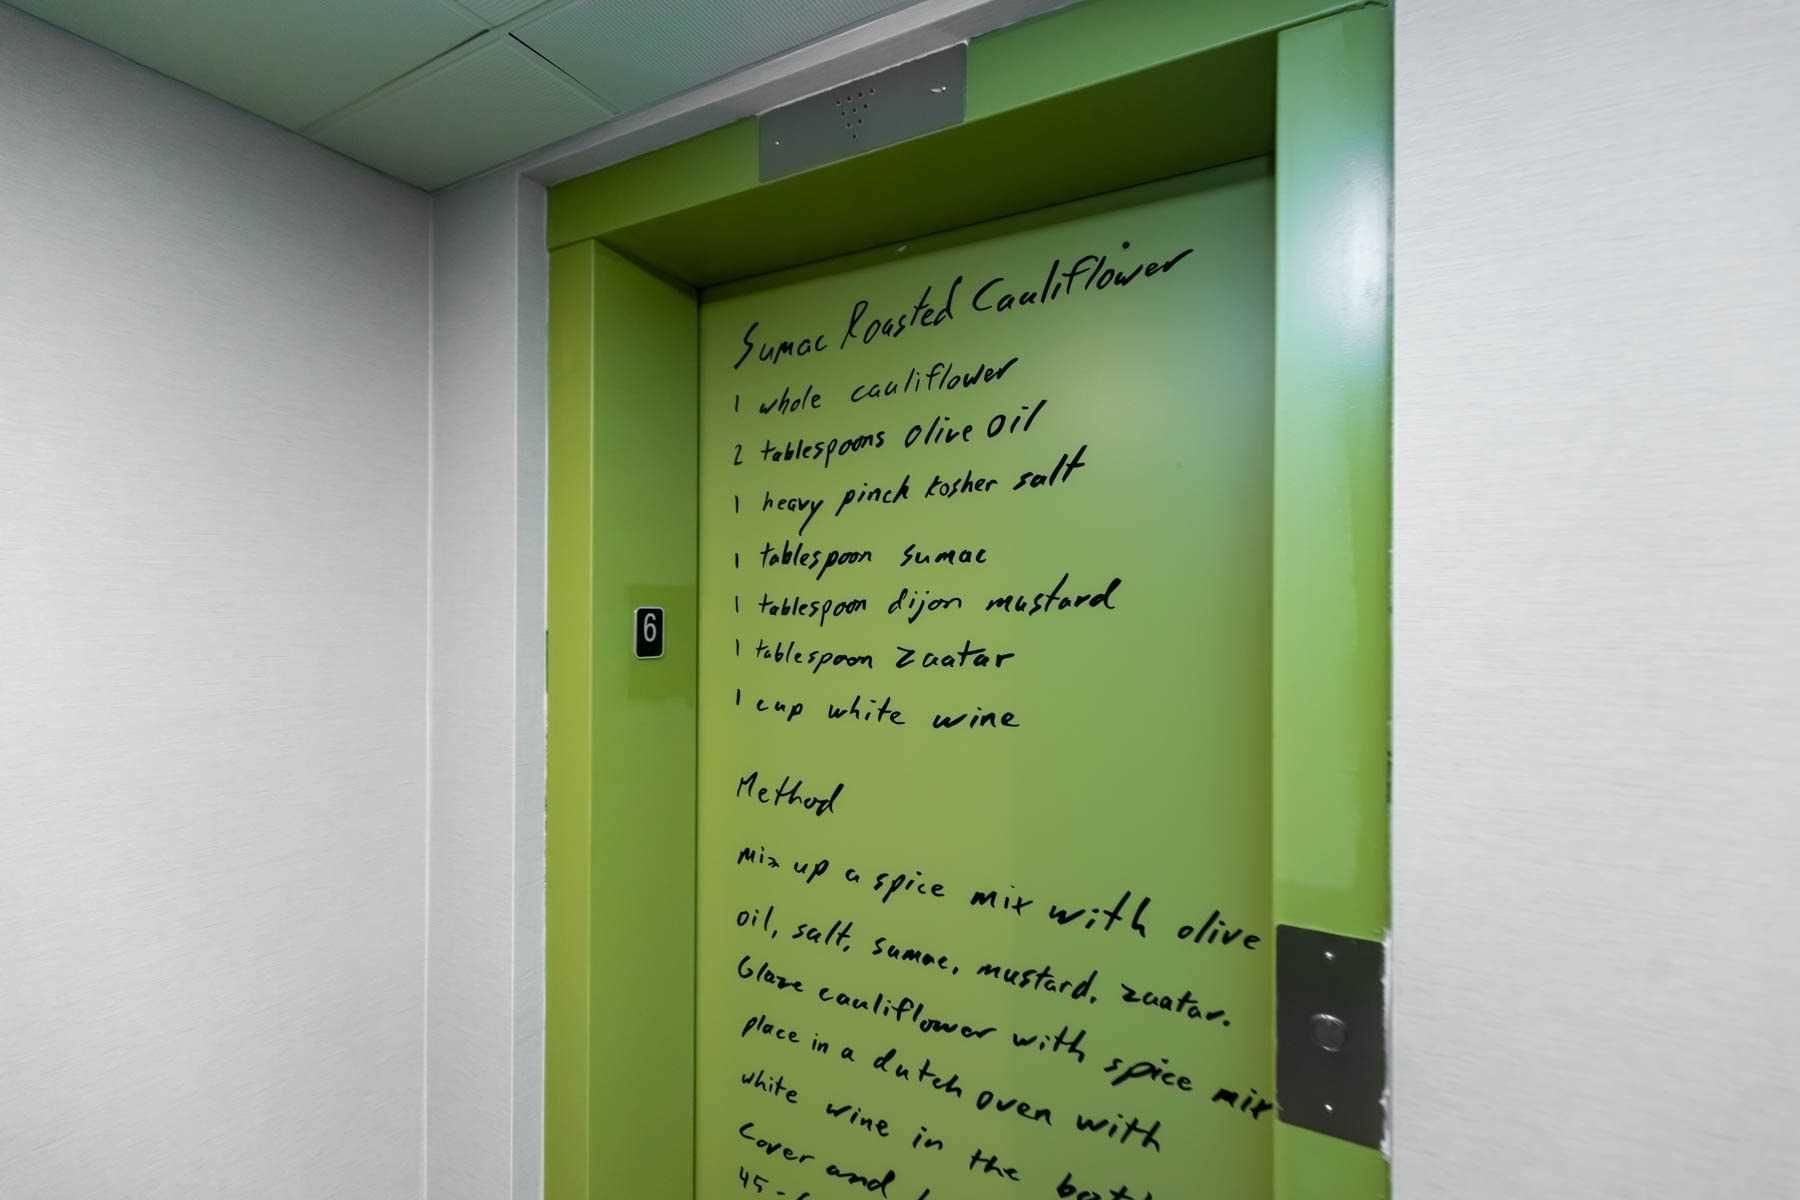 Sumac Roasted Cauliflower
1 whole cauliflower
2 tablespoons olive oil
1 heavy pinch kosher salt
1 tablespoon sumac
1 tablespoon dijon mustard
1 tablespoon zaatar
1 cup white wine
Method
mix up a spice mix with olive
oil, salt, sumac, mustard, zaatar.
Glaze cauliflower with spice mix
place in a dutch oven with
white wine in the
Cover and
45-
6